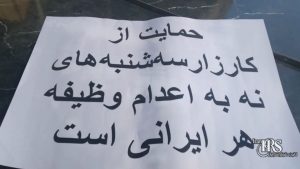 حمایت از
کارزار سه‌شنبه‌های
نه به اعدام وظیفه
هر ایرانی است